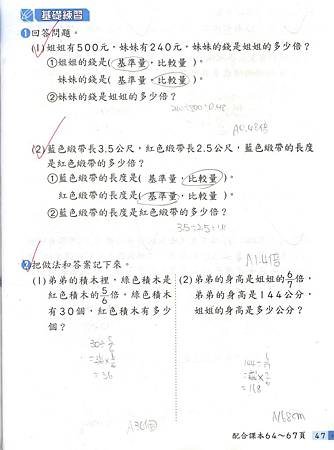 基礎練習
1 回答問題。
(1)姐姐有500元，妹妹有240元，妹妹的錢是姐姐的多少倍？
①姐姐的錢是(基準量，比較量)。
妹妹的錢是(基準量，比較量)。
②妹妹的錢是姐姐的多少倍？
240÷500=0.48
A0.48倍
(2)藍色緞帶長3.5公尺，紅色緞帶長2.5公尺，藍色緞帶的長度
是紅色緞帶的多少倍？
①藍色緞帶的長度是(基準量，比較量)。
紅色緞帶的長度是(基準量，比較量)。
②藍色緞帶的長度是紅色緞帶的多少倍？
3.5÷2.5=1.4
A1.4倍
2 把做法和答案記下來。
(1)弟弟的積木裡，綠色積木是
紅色積木的5/6倍，綠色積木
有30個，紅色積木有多少
個？
30÷5/6
=36
A36個
(2)弟弟的身高是姐姐的6/7倍，
弟弟的身高是144公分，
姐姐的身高是多少公分？
144÷6/7
=168
A168cm
配合課本64～67頁 47